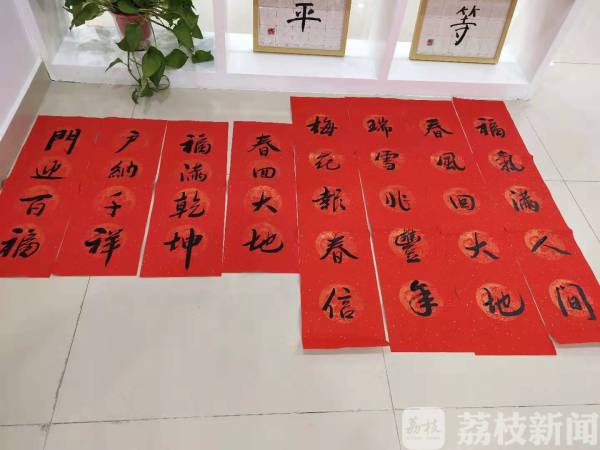 平
等
福氣滿人間
春風回大地
瑞雪兆豐年
梅花報春信
春回大地
福滿乾坤
戶納千祥
門迎百福
荔枝
荔枝新闻